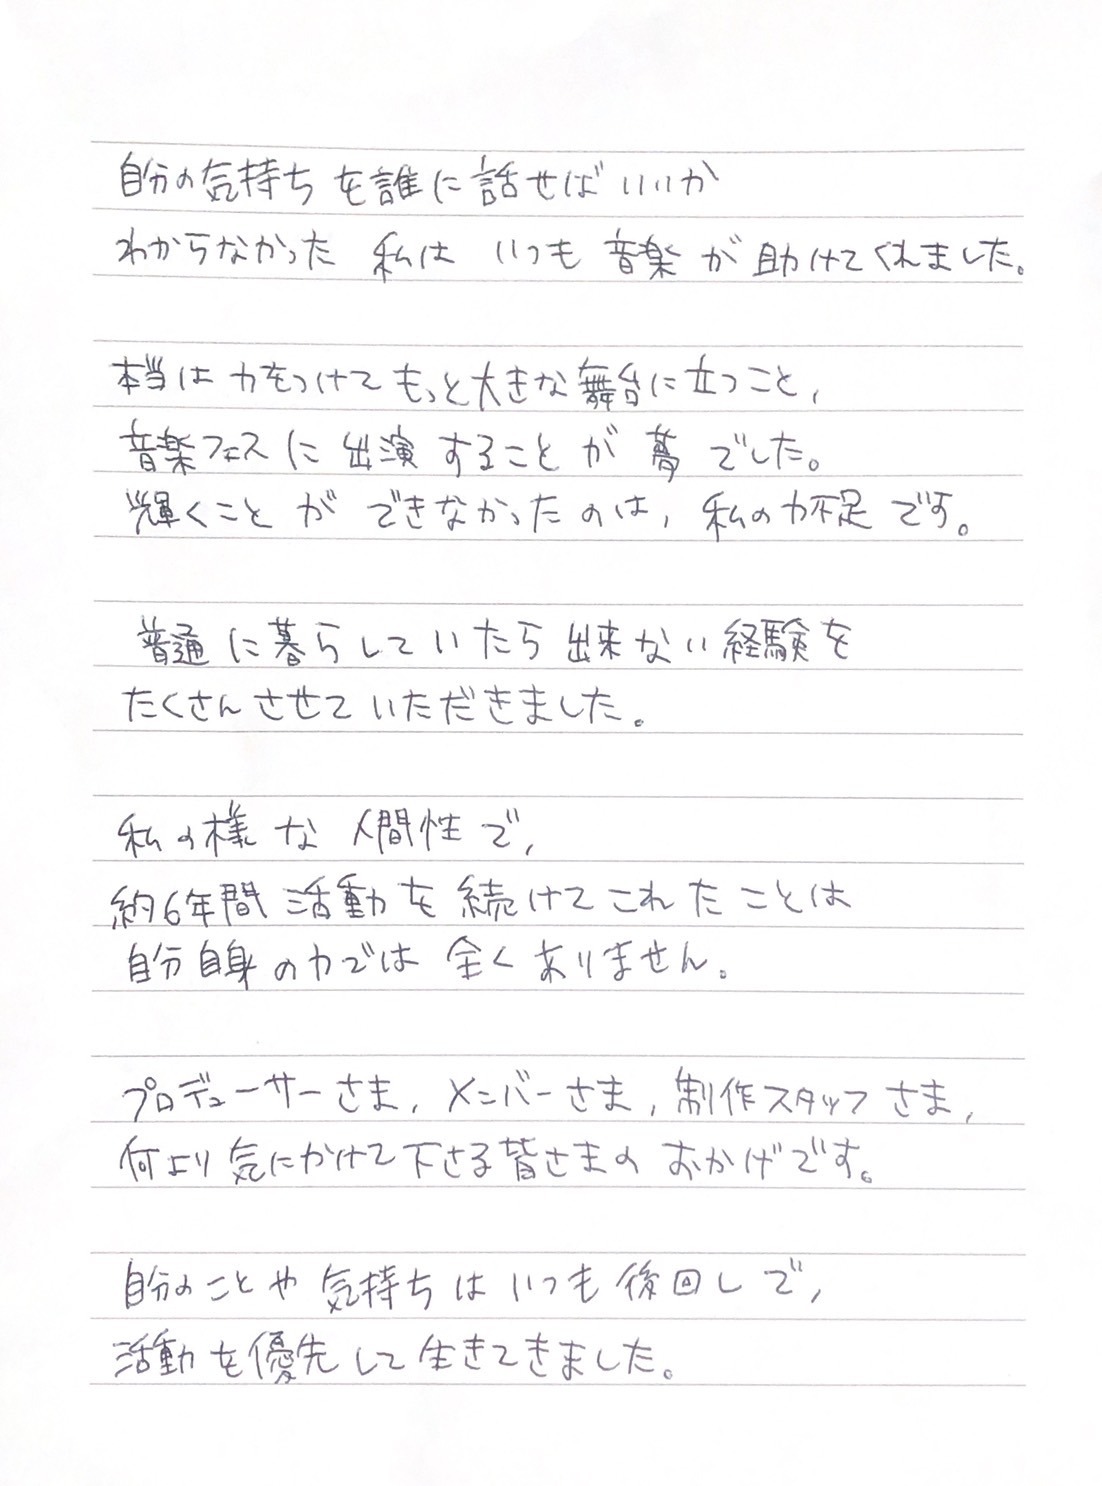 自分の気持ちを誰に話せばいいか
わからなかった 私は いつも 音楽が助けてくれました。
本当は力をつけてもっと大きな舞台に立つこと,
音楽フェスに出演することが夢でした。
輝くことができなかったのは, 私の力不足です。
普通に暮らしていたら出来ない経験を
たくさんさせていただきました。
私の様な人間性で,
約6年間活動を続けてこれたことは
自分自身の力では全くありません。
プロデューサーさま, メンバーさま, 制作スタッフさま,
何より気にかけて下さる皆さまのおかげです。
自分のことや気持ちはいつも後回しで,
活動を優先して生きてきました。